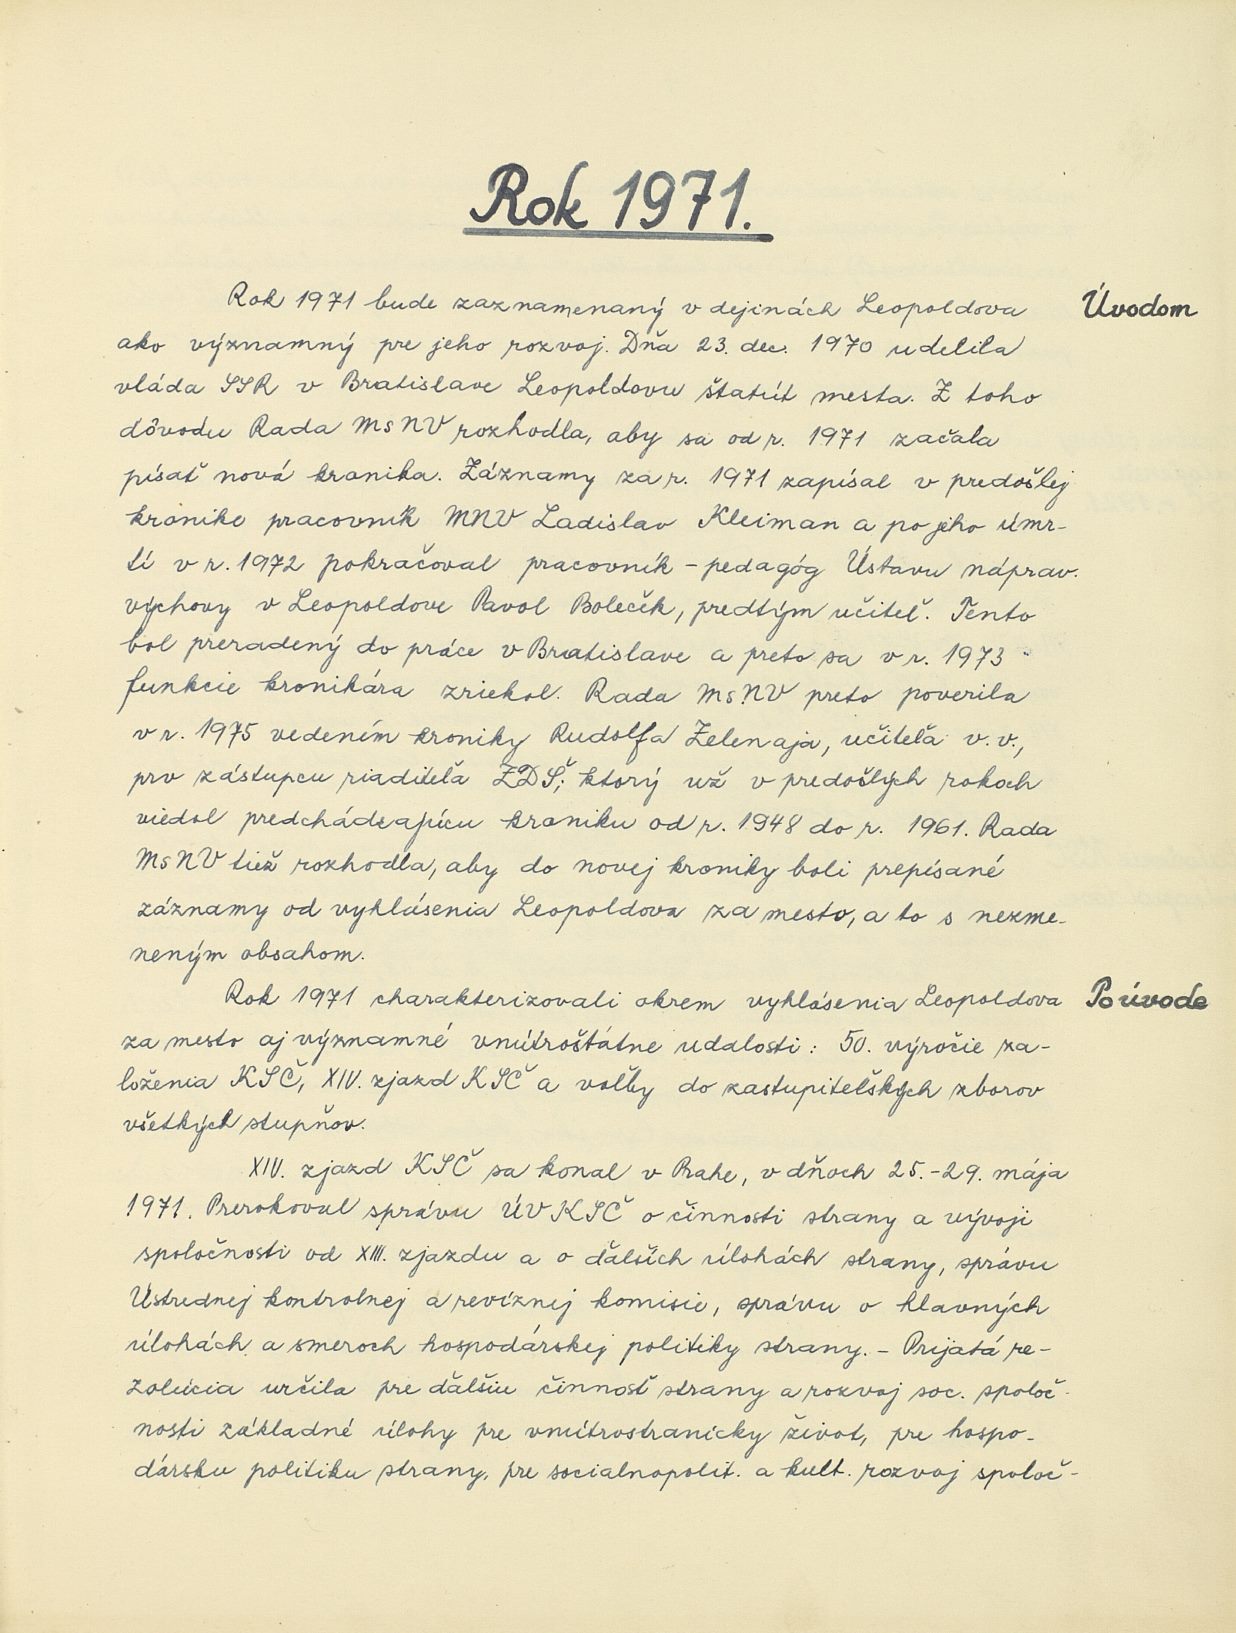 Rok 1971.
Rok 1971 bude zaznamenaný v dejinách Leopoldova
Úvodom
ako významný pre jeho rozvoj. Dňa 23. dec. 1970 udelila
vláda SSR v Bratislave Leopoldovu štatút mesta. Z toho
dôvodu Rada MsNV rozhodla, aby sa od r. 1971 začala
písať nová kronika. Záznamy za r. 1971 zapísal v predošlej
kronike pracovník MNV Ladislav Kleiman a po jeho úmr-
tí v r. 1972 pokračoval pracovník - pedagóg Ústavu náprav.
výchovy v Leopoldove Pavol Boleček, predtým učiteľ. Tento
bol preradený do práce v Bratislave a preto sa v r. 1973
funkcie kronikára zriekol. Rada MsNV preto poverila
v r. 1975 vedením kroniky Rudolfa Zelenaja, učiteľa v. v.,
prv zástupcu riaditeľa ZDŠ, ktorý už v predošlých rokoch
viedol predchádzajúcu kroniku od r. 1948 do r. 1961. Rada
MsNV tiež rozhodla, aby do novej kroniky boli prepísané
záznamy od vyhlásenia Leopoldova za mesto, a to s nezme-
neným obsahom.
Rok 1971 charakterizovali okrem vyhlásenia Leopoldova
Po úvode
za mesto aj významné vnútroštátne udalosti: 50. výročie za-
loženia KSČ, XIV. zjazd KSČ a voľby do zastupiteľských zborov
všetkých stupňov.
XIV. zjazd KSČ sa konal v Prahe, v dňoch 25.-29. mája
1971. Prerokoval správu ÚV KSČ o činnosti strany a vývoji
spoločnosti od XIII. zjazdu a o ďalších úlohách strany, správu
Ústrednej kontrolnej a revíznej komisie, správu o hlavných
úlohách a smeroch hospodárskej politiky strany. - Prijatá re-
zolúcia určila pre ďalšiu činnosť strany a rozvoj soc. spoloč-
nosti základné úlohy pre vnútrostranícky život, pre hospo-
dársku politiku strany, pre socialnopolit. a kult. rozvoj spoloč-